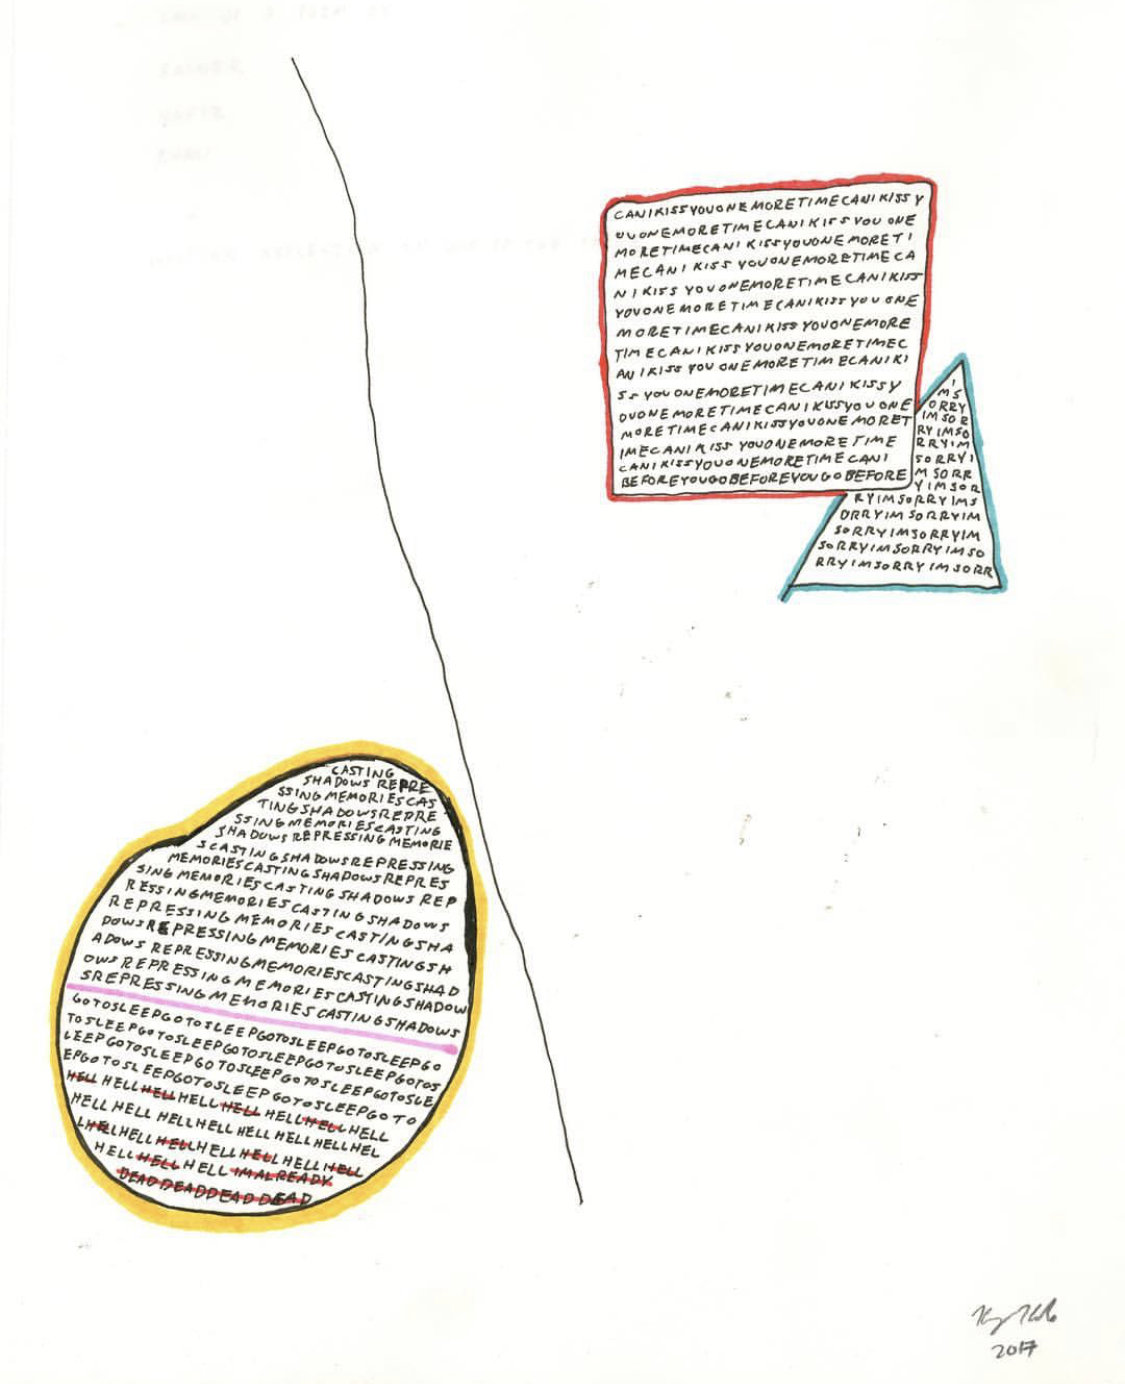 CANIKISSYOUONEMORETIMECANIKISSY
OUONEMORETIMECANIKISSYOUONE
MORETIMECANIKISSYOUONEMORETI
MECANIKISSYOUONEMORETIMECA
NIKISSYOUONEMORETIMECANIKISS
YOUONEMORETIMECANIKISSYOUONE
MORETIMECANIKISSYOUONEMORE
TIMECANIKISSYOUONEMORETIMEC
ANIKISSYOUONEMORETIMECANIKI
SSYOUONEMORETIMECANIKISSY
OUONEMORETIMECANIKISSYOUONE
MORETIMECANIKISSYOUONEMORET
IMECANIKISSYOUONEMORETIME
CANIKISSYOUONEMORETIMECANI
BEFOREYOUGOBEFOREYOUGOBEFORE
I
M'S
ORRY
IMSOR
RYIMSO
RRYIM
SORRYI
MSORR
YIMSOR
RYIMSORRYIMS
ORRYIMSORRYIM
SORRYIMSORRYIM
SORRYIMSORRYIMSO
RRYIMSORRYIMSORR
CASTING
SHADOWS REPRE
SSING MEMORIESCAS
TINGSHADOWSREPRE
SSING MEMORIESCASTING
SHADOWS REPRESSING MEMORIE
SCASTINGSHADOWSREPRESSING
MEMORIESCASTINGSHADOWSREPRES
SING MEMORIESCASTING SHADOWS REP
RESSINGMEMORIESCASTINGSHADOWS
REPRESSING MEMORIES CASTINGSHA
DOWSREPRESSING MEMORIES CASTINGSH
ADOWS REPRESSINGMEMORIESCASTINGSHAD
OWS REPRESSING MEMORIESCASTINGSHADOW
SREPRESSINGMEMORIESCASTINGSHADOWS
GOTOSLEEPGOTOSLEEPGOTOSLEEPGOTOSLEEPGO
TOSLEEPGOTOSLEEPGOTOSLEEPGOTOSLEEPGOTOS
LEEPGOTOSLEEPGOTOSLEEPGOTOSLEEPGOTOSLE
EPGOTOSLEEPGOTOSLEEPGOTOSLEEPGOTO
HELL HELL HELL HELL HELL HELL HELL HELL
HELL HELL HELLHELL HELL HELLHELLHEL
LHELLHELLHELLHELLHELLHELLHELL
HELL HELL HELL IMALREADY
DEADDEADDEADDEAD
2017